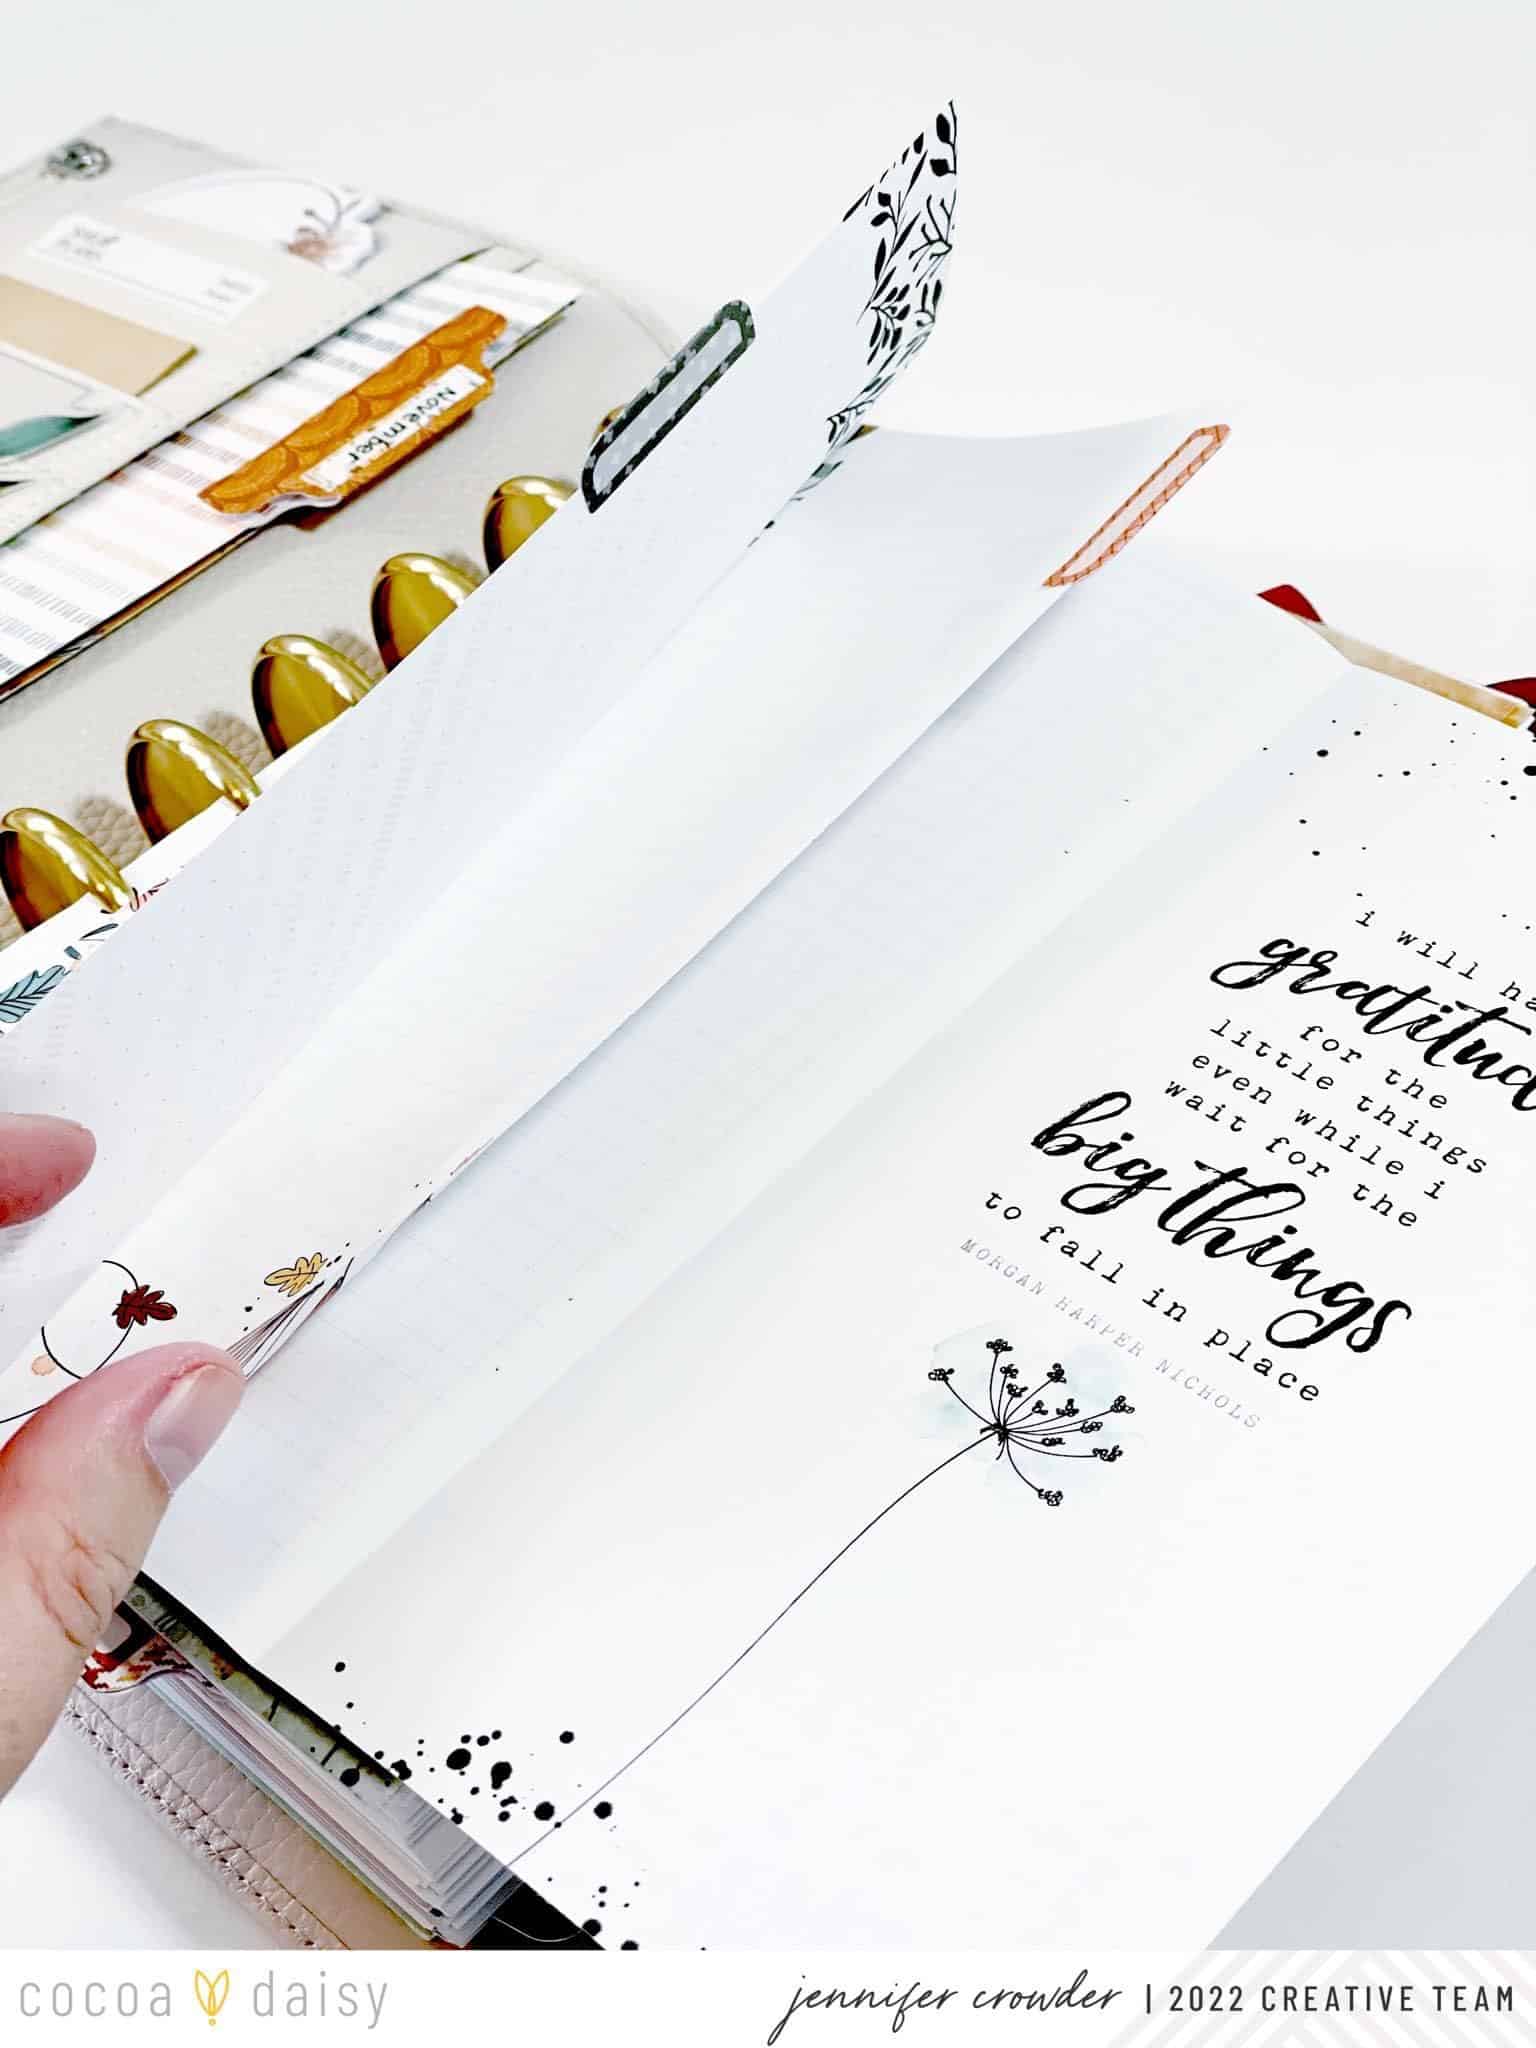 November
i will ha
gratitud
for the
little things
even while i
wait for the
big things
to fall in place
MORGAN HARPER NICHOLS
cocoa daisy
jennifer crowder | 2022 CREATIVE TEAM